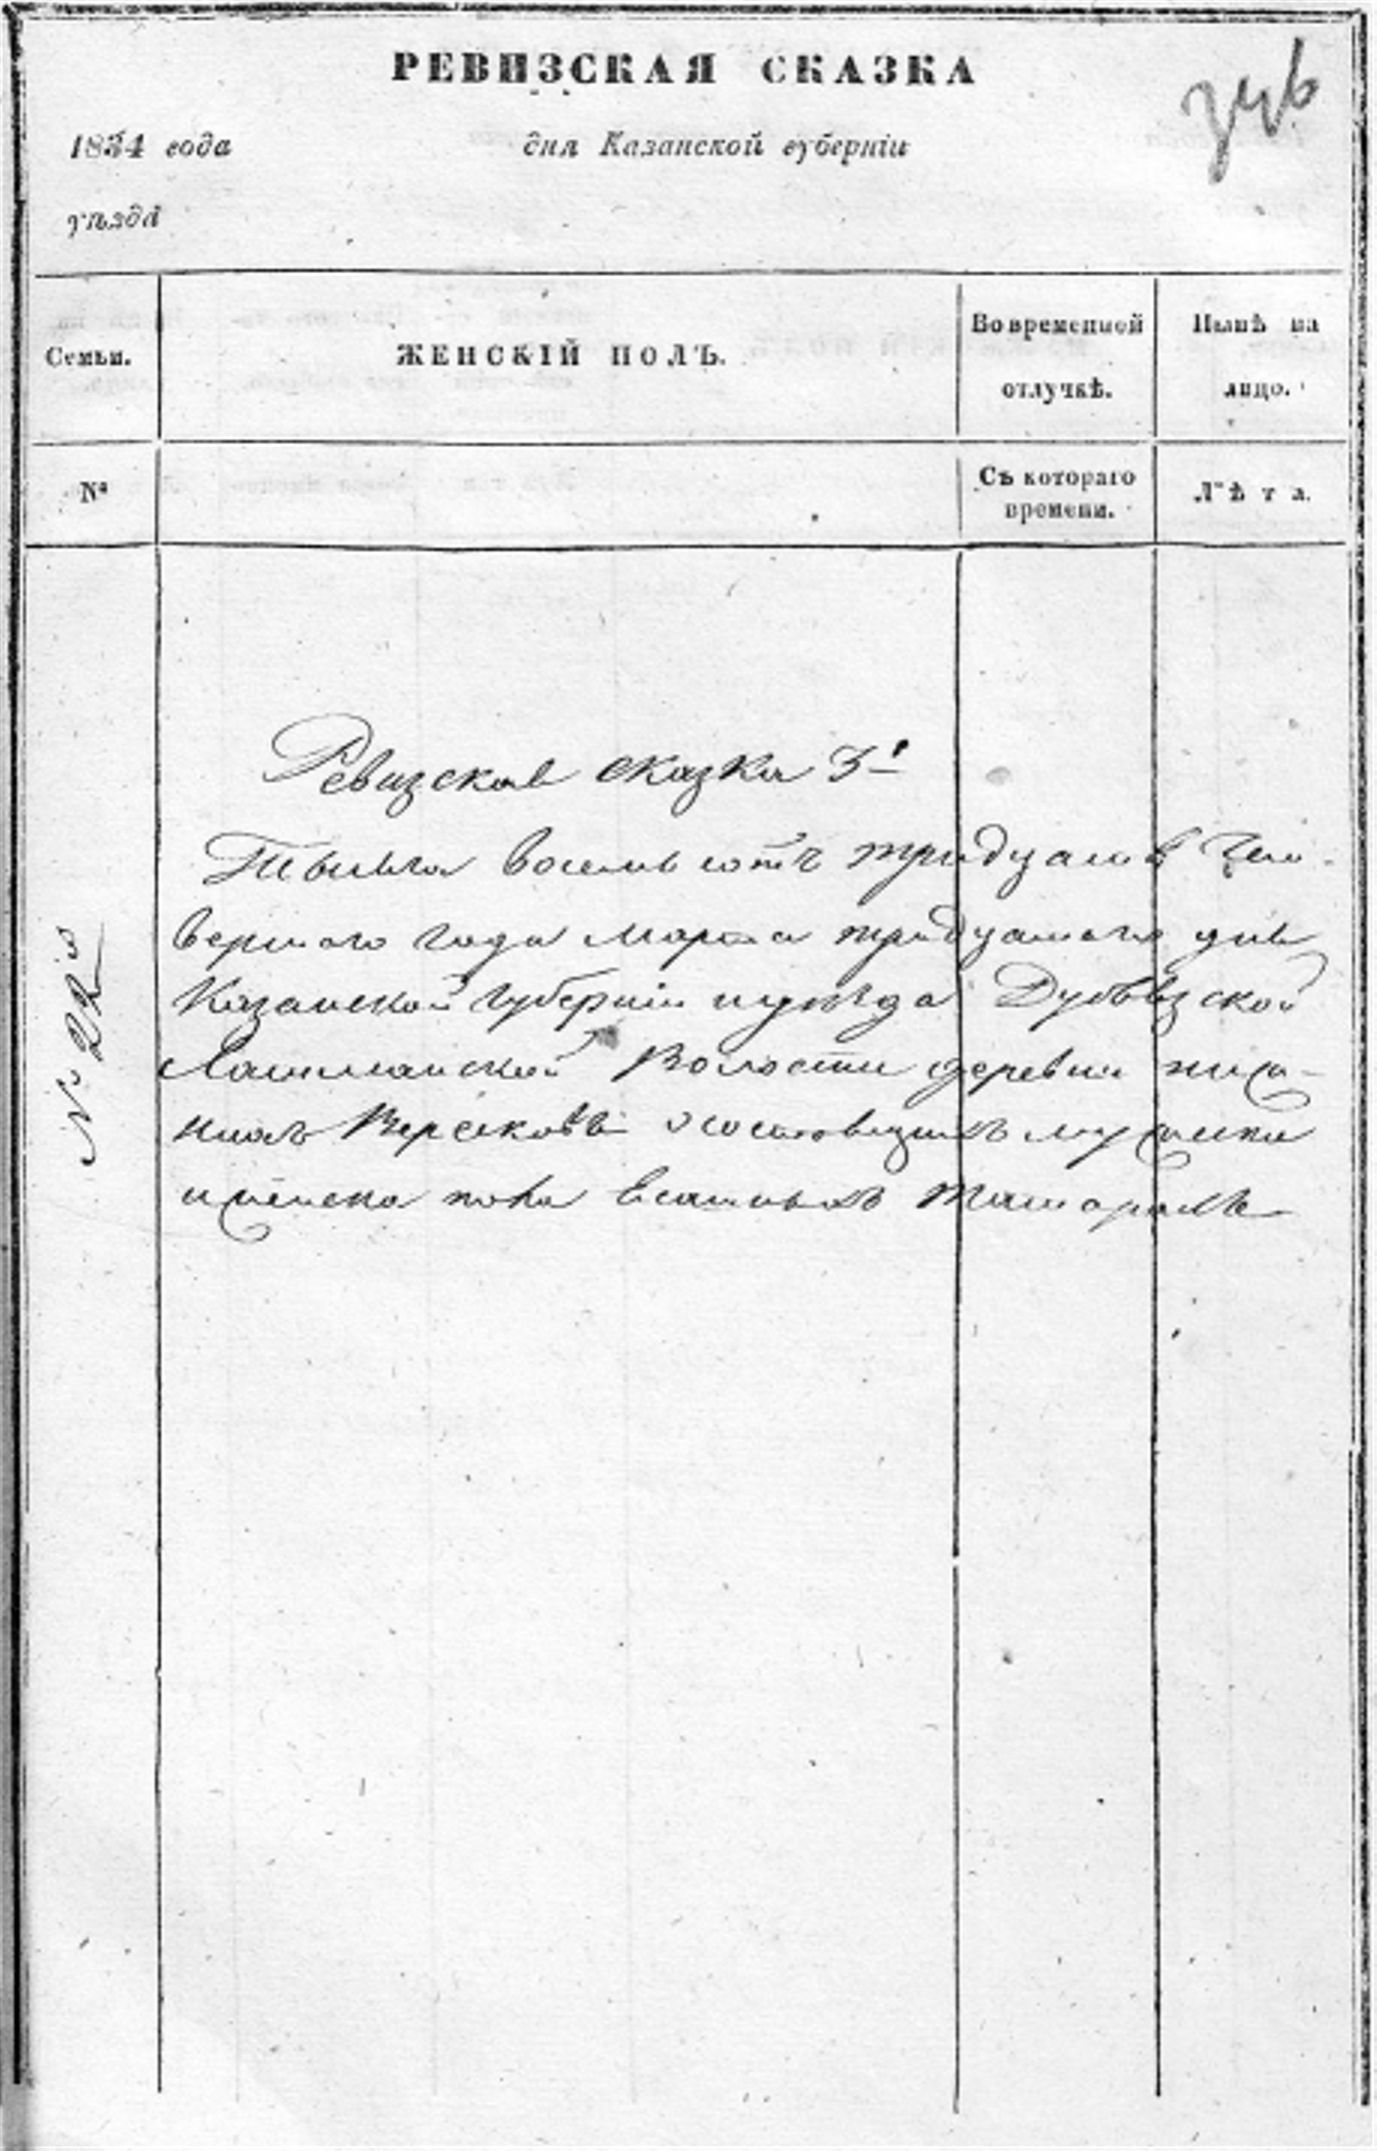 РЕВИЗСКАЯ СКАЗКА
1834 года дня Казанской губерніи
уѣзда
Семьи. ЖЕНСКІЙ ПОЛЪ. Во временной отлучкѣ. Нынѣ на лицо.
№ Съ котораго времени. Лѣта.
Ревизская сказка
Тысяча восемь сотъ тридцать чет-
вертаго года марта тридцатаго дня
Казанской губерніи и уѣзда
Лашманской Волости деревни
о состоящихъ мужеска
и женска пола Татарахъ
№ 22